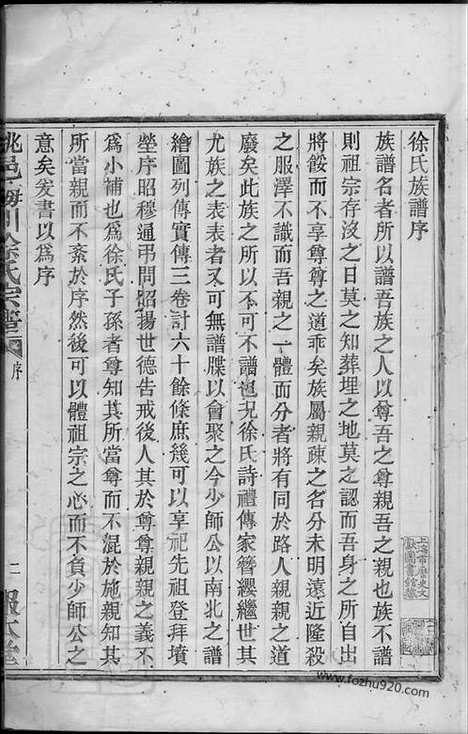 徐氏族譜序
族譜名者所以譜吾族之人以尊吾之尊親吾之親也族不譜
則祖宗存沒之日莫之知葬埋之地莫之認而吾身之所自出
將餒而不享尊尊之道乖矣族屬親疎之名分未明遠近隆殺
之服澤不識而吾親之一體而分者將有同於路人親親之道
廢矣此族之所以不可不譜也况徐氏詩禮傳家簪纓繼世其
尤族之表表者可無譜牒以會聚之今少師公以南北之譜
繪圖列傳實傳三卷計六十餘條庶幾可以享祀先祖登拜墳
塋序昭穆通弔問昭揚世德告戒後人其於尊尊親親之義不
爲小補也爲徐氏子孫者尊知其所當尊而不混於施親知其
所當親而不紊於序然後可以體祖宗之心而不負少師公之
意矣爰書以爲序
姚邑 川徐氏宗譜 序 二 報本堂
上海市歷史文獻圖書館藏
www.fozhu920.com